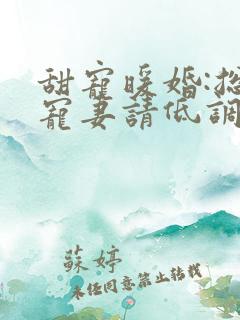 甜寵暖婚:總
寵妻請低調
蘇婷
未經同意禁止轉載